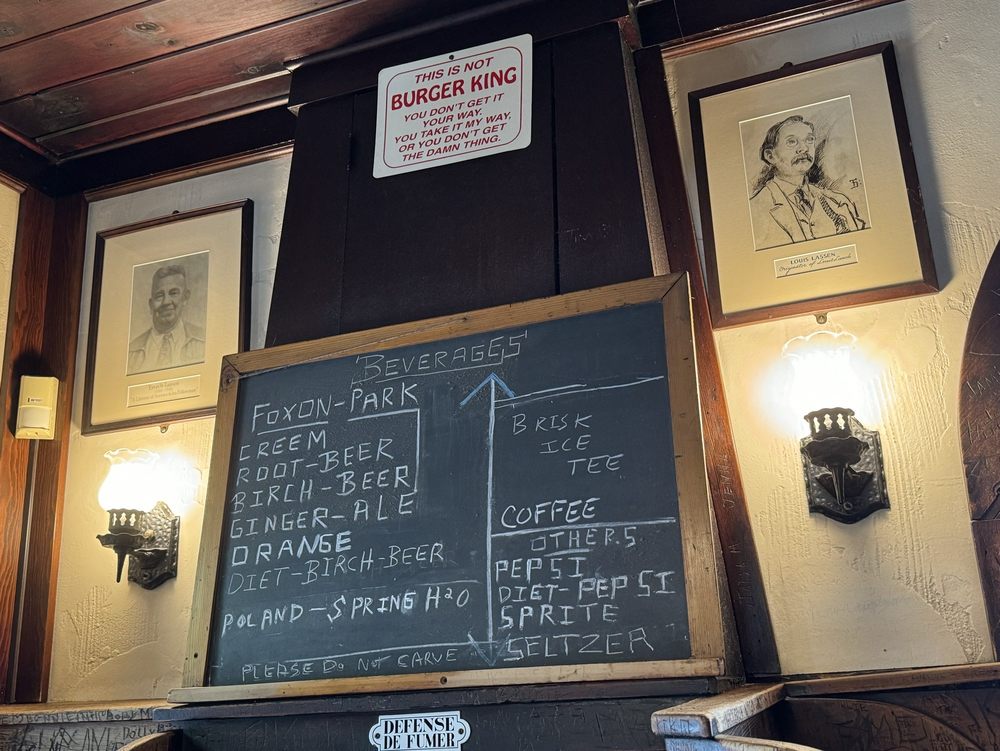 THIS IS NOT
BURGER KING
YOU DON'T GET IT
YOUR WAY.
YOU TAKE IT MY WAY,
OR YOU DON'T GET
THE DAMN THING.
LOUIS LASSEN
Originator of
BEVERAGES
FOXON-PARK
CREEM
ROOT-BEER
BIRCH-BEER
GINGER-ALE
ORANGE
DIET-BIRCH-BEER
POLAND-SPRING H2O
PLEASE DO NOT CARVE
BRISK
ICE
TEE
COFFEE
OTHERS
PEPSI
DIET-PEPSI
SPRITE
SELTZER
DEFENSE
DE FUMER